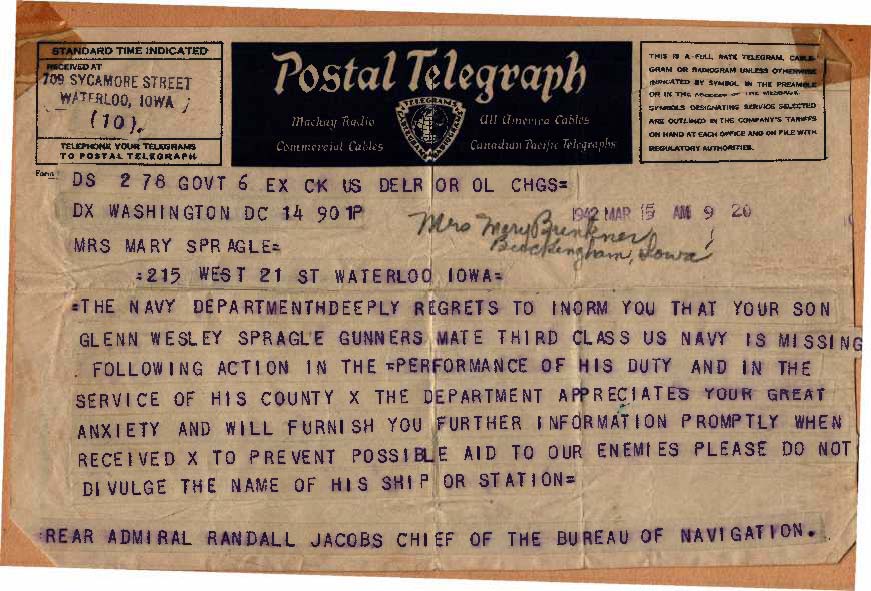 STANDARD TIME INDICATED
RECEIVED AT
709 SYCAMORE STREET
WATERLOO, IOWA
(10).
TELEPHONE YOUR TELEGRAMS
TO POSTAL TELEGRAPH
Postal Telegraph
Mackay Radio
All America Cables
Commercial Cables
Canadian Pacific Telegraphs
TELEGRAMS
THIS IS A FULL RATE TELEGRAM, CABLE-
GRAM OR RADIOGRAM UNLESS OTHERWISE
INDICATED BY SYMBOL IN THE PREAMBLE
OR IN THE ADDRESS OF THE MESSAGE.
SYMBOLS DESIGNATING SERVICE SELECTED
ARE OUTLINED IN THE COMPANY'S TARIFFS
ON HAND AT EACH OFFICE AND ON FILE WITH
REGULATORY AUTHORITIES.
Form
DS 2 78 GOVT 6 EX CK US DELR OR OL CHGS=
DX WASHINGTON DC 14 901P
1942 MAR 15 AM 9 20
Mrs Mary
Iowa
MRS MARY SPRAGLE=
=215 WEST 21 ST WATERLOO IOWA=
=THE NAVY DEPARTMENTHDEEPLY REGRETS TO INORM YOU THAT YOUR SON
GLENN WESLEY SPRAGLE GUNNERS MATE THIRD CLASS US NAVY IS MISSING
. FOLLOWING ACTION IN THE =PERFORMANCE OF HIS DUTY AND IN THE
SERVICE OF HIS COUNTY X THE DEPARTMENT APPRECIATES YOUR GREAT
ANXIETY AND WILL FURNISH YOU FURTHER INFORMATION PROMPTLY WHEN
RECEIVED X TO PREVENT POSSIBLE AID TO OUR ENEMIES PLEASE DO NOT
DIVULGE THE NAME OF HIS SHIP OR STATION=
:REAR ADMIRAL RANDALL JACOBS CHIEF OF THE BUREAU OF NAVIGATION.